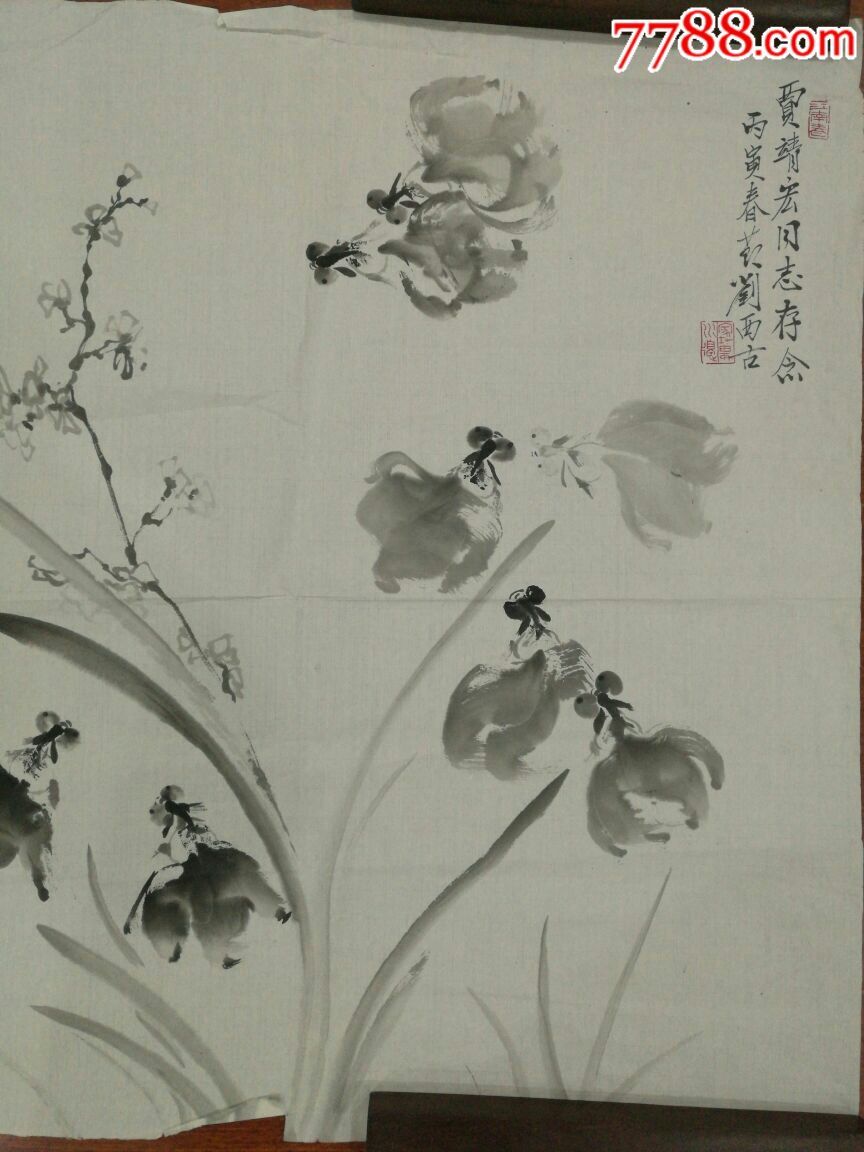 7788.com
賈靖宏同志存念
丙寅春
劉西古